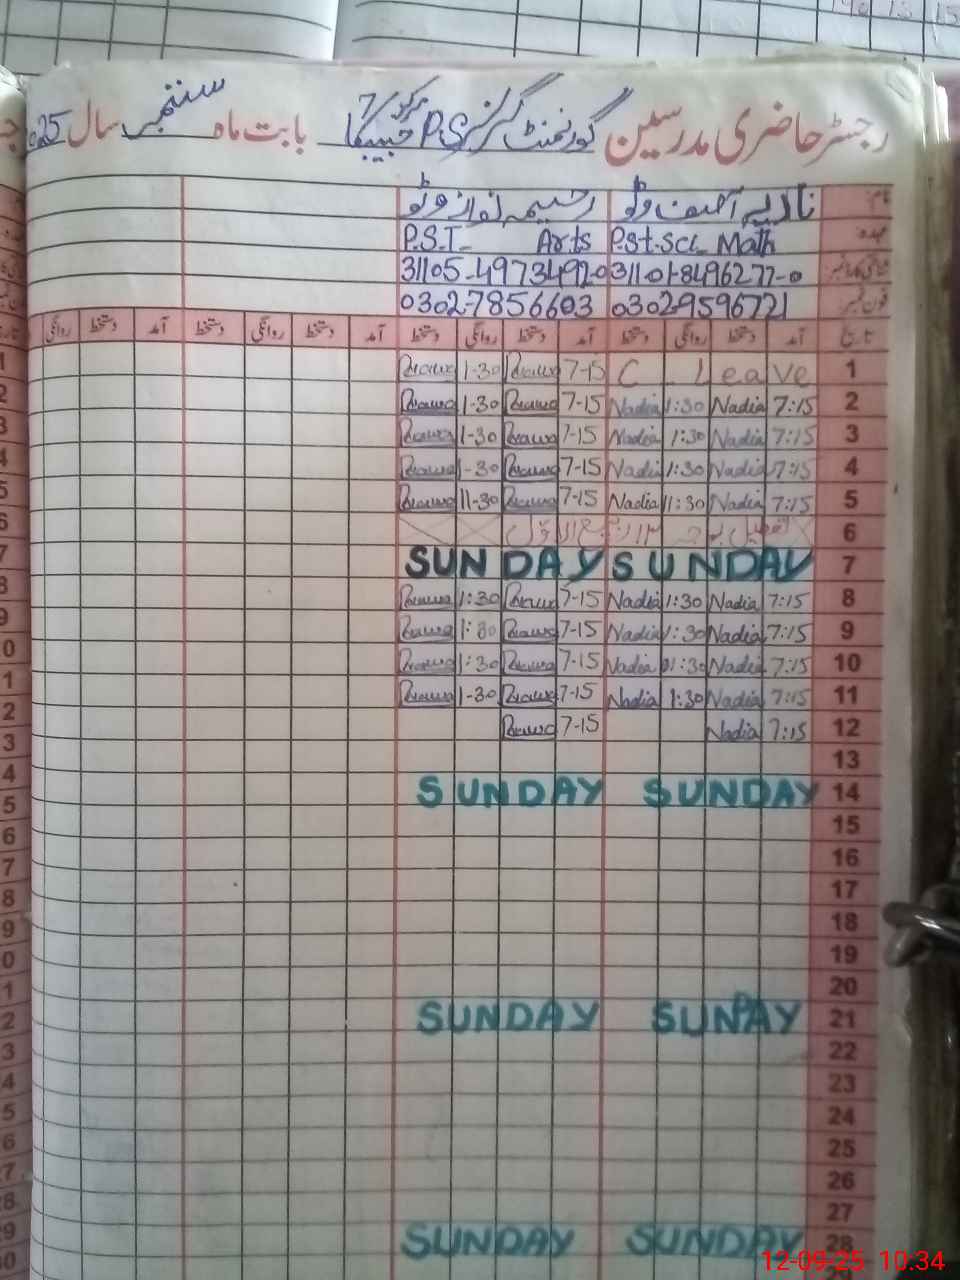 رجسٹر حاضری مدرسین گورنمنٹ گرلز P.S مرکز 7 بابت ماہ ستمبر سال 025
نام نادیہ آصف وٹو نواز وٹو
عہدہ P.S.t.Sci_ Math P.S.T_ Arts
31101-8496277-0 31105-4973492-0
فون نمبر 03029596721 0302-7856603
تاریخ آمد دستخط روانگی دستخط آمد دستخط روانگی دستخط آمد دستخط روانگی دستخط آمد دستخط روانگی
1 C_Leave 7-15 1-30
2 7:15 Nadia 1:30 Nadia 7-15 1-30
3 7:15 Nadia 1:30 Nadia 7-15 1-30
4 7:15 Nadia 1:30 Nadia 7-15 1-30
5 7:15 Nadia 11:30 Nadia 7-15 11-30
6 تعطیل بوجہ ۱۲ ربیع الاوّل
7 SUNDAY SUNDAY
8 7:15 Nadia 1:30 Nadia 7-15 1:30
9 7:15 Nadia 1:30 Nadia 7-15 1:30
10 7:15 Nadia 1:30 Nadia 7-15 1:30
11 7:15 Nadia 1:30 Nadia 7-15 1-30
12 7:15 Nadia 7-15
13
14 SUNDAY SUNDAY
15
16
17
18
19
20
21 SUNDAY SUNDAY
22
23
24
25
26
27
28 SUNDAY SUNDAY
12-09-25 10:34